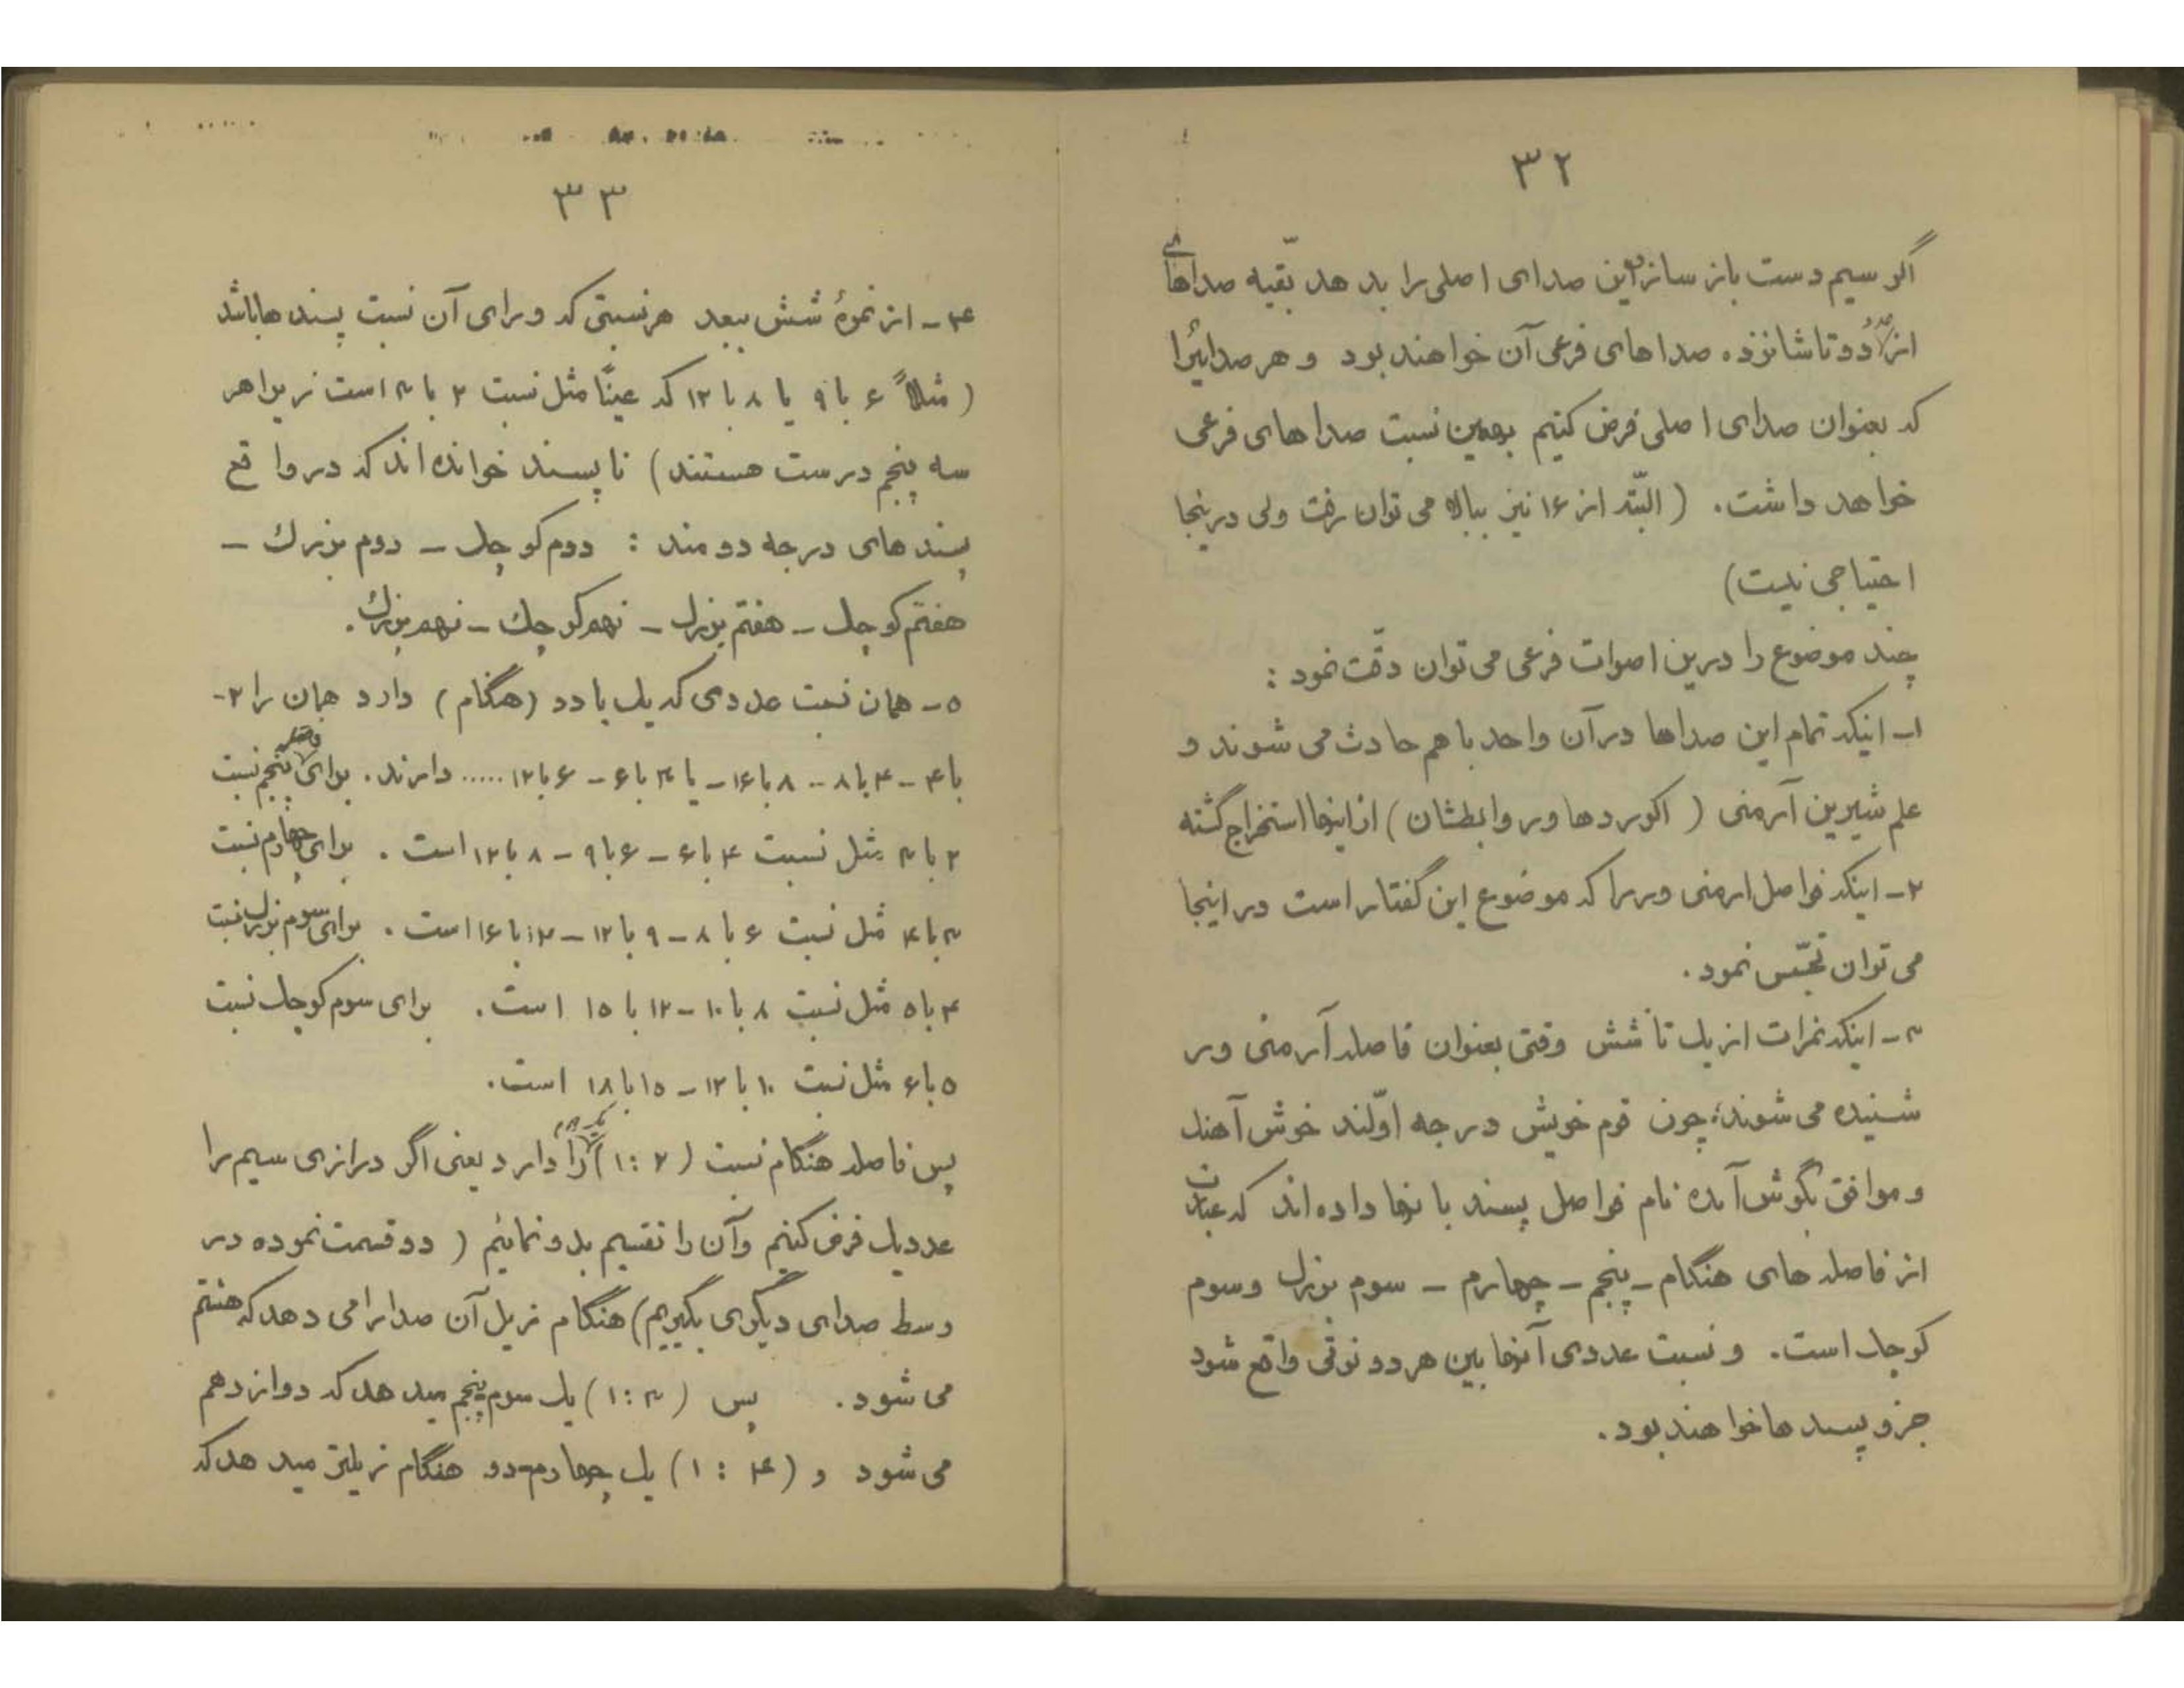 ۳۲
اگر سیم دست باز ساز این صدای اصلی را بدهد بقیّه صداهای
از دو تا شانزده صداهای فرعی آن خواهند بود و هر صدائیرا
که بعنوان صدای اصلی فرض کنیم بهمین نسبت صداهای فرعی
خواهد داشت. (البتّه از ۱۶ نیز ببالا می توان رفت ولی درینجا
احتیاجی نیست)
چند موضوع را درین اصوات فرعی می توان دقّت نمود :
۱- اینکه تمام این صداها در آن واحد با هم حادث می شوند و
علم شیرین آرمنی (اکوردها و روابطشان) از اینها استخراج گشته
۲- اینکه فواصل ارمنی ور را که موضوع این گفتار است در اینجا
می توان تجسّس نمود.
۳- اینکه نمرات از یک تا شش وقتی بعنوان فاصله آرمنی ور
شنیده می شوند، چون قوم خویش درجه اوّلند خوش آهنک
و موافق بگوش آمده نام فواصل پسند بانها داده اند که عبارت
از فاصله های هنگام - پنجم - چهارم - سوم بزرک و سوم
کوچک است. و نسبت عددی آنها بین هر دو نوتی واقع شود
جزو پسندها خواهند بود.
۳۳
۴- از نمرهٔ شش ببعد هر نسبتی که ورای آن نسبت پسندها باشد
(مثلاً ۶ با ۹ یا ۸ با ۱۲ که عیناً مثل نسبت ۲ با ۳ است زیرا هر
سه پنجم درست هستند) نا پسند خوانده اند که در واقع
پسندهای درجه دومند : دوم کوچک - دوم بزرک -
هفتم کوچک - هفتم بزرک - نهم کوچک - نهم بزرک.
۵- همان نسبت عددی که یک با دو (هنگام) دارد همان را ۲-
با ۴ - ۴ با ۸ - ۸ با ۱۶ - یا ۳ با ۶ - ۶ با ۱۲ ..... دارند. برای فاصله پنجم نسبت
۲ با ۳ مثل نسبت ۴ با ۶ - ۶ با ۹ - ۸ با ۱۲ است. برای چهارم نسبت
۳ با ۴ مثل نسبت ۶ با ۸ - ۹ با ۱۲ - ۱۲ با ۱۶ است. برای سوم بزرک نسبت
۴ با ۵ مثل نسبت ۸ با ۱۰ - ۱۲ با ۱۵ است. برای سوم کوچک نسبت
۵ با ۶ مثل نسبت ۱۰ با ۱۲ - ۱۵ با ۱۸ است.
پس فاصله هنگام نسبت (۱:۲) را دارد یعنی اگر درازی سیم را
عدد یک فرض کنیم و آن را تقسیم بدو نمائیم (دو قسمت نموده در
وسط صدای دیگری بگیریم) هنگام زیل آن صدا را می دهد که هشتم
می شود. پس (۱:۳) یک سوم پنجم میدهد که دوازدهم
می شود و (۱ : ۴) یک چهارم دو هنگام زیلتر میدهد که